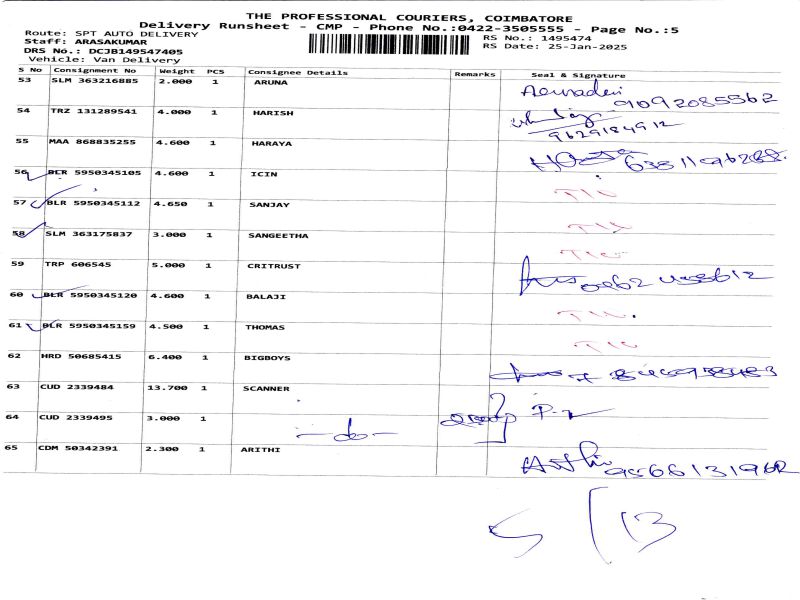 THE PROFESSIONAL COURIERS, COIMBATORE
Delivery Runsheet - CMP - Phone No.:0422-3505555 - Page No.:5
Route: SPT AUTO DELIVERY
RS No.: 1495474
Staff: ARASAKUMAR
RS Date: 25-Jan-2025
DRS No.: DCJB149547405
Vehicle: Van Delivery
S No Consignment No Weight PCS Consignee Details Remarks Seal & Signature
53 SLM 363216885 2.000 1 ARUNA 9092085562
54 TRZ 131289541 4.000 1 HARISH 9629184912
55 MAA 868835255 4.600 1 HARAYA
56 BLR 5950345105 4.600 1 ICIN
57 BLR 5950345112 4.650 1 SANJAY
58 SLM 363175837 3.000 1 SANGEETHA
59 TRP 606545 5.000 1 CRITRUST
60 BLR 5950345120 4.600 1 BALAJI
61 BLR 5950345159 4.500 1 THOMAS
62 HRD 50685415 6.400 1 BIGBOYS
63 CUD 2339484 13.700 1 SCANNER
64 CUD 2339495 3.000 1 -do-
65 CDM 50342391 2.300 1 ARITHI
5/13